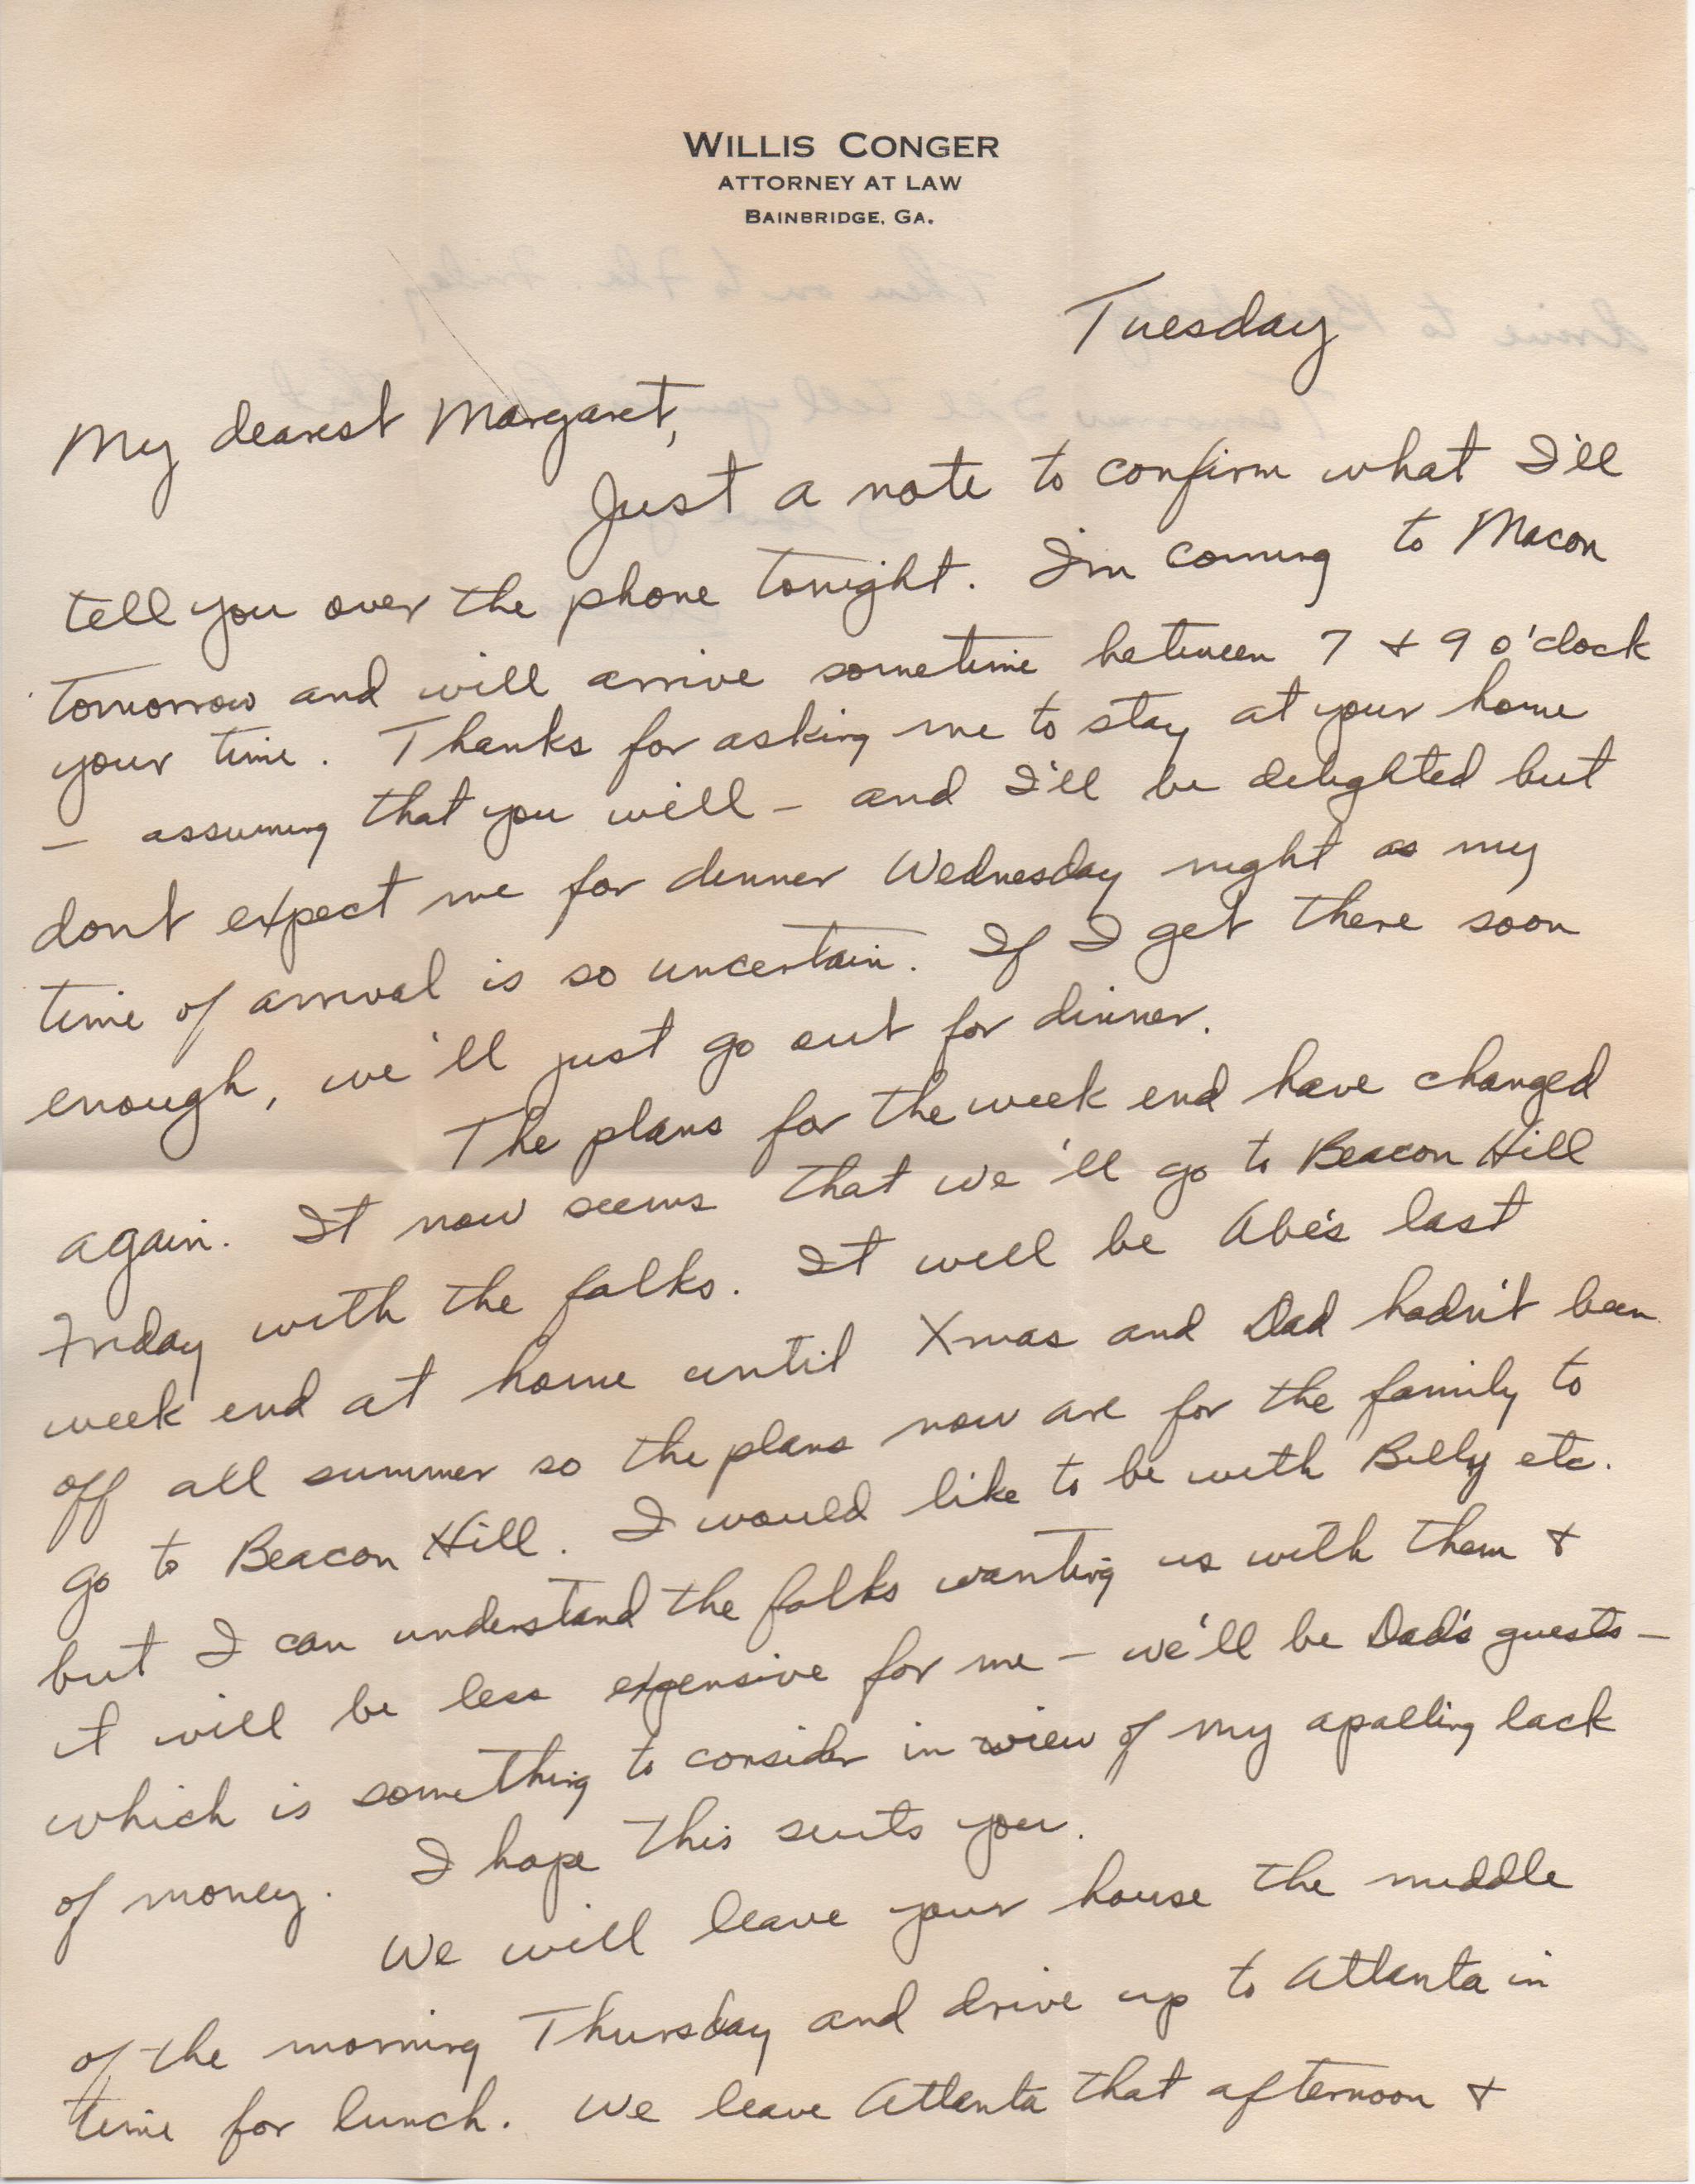 WILLIS CONGER
ATTORNEY AT LAW
BAINBRIDGE, GA.
Tuesday
My dearest Margaret,
Just a note to confirm what I'll
tell you over the phone tonight. I'm coming to Macon
tomorrow and will arrive sometime between 7 & 9 o'clock
your time. Thanks for asking me to stay at your home
– assuming that you will – and I'll be delighted but
dont expect me for dinner Wednesday night as my
time of arrival is so uncertain. If I get there soon
enough, we'll just go out for dinner.
The plans for the week end have changed
again. It now seems that we'll go to Beacon Hill
Friday with the folks. It will be Abe's last
week end at home until Xmas and Dad hadn't been
off all summer so the plans now are for the family to
go to Beacon Hill. I would like to be with Billy etc.
but I can understand the folks wanting us with them &
it will be less expensive for me – we'll be Dad's guests –
which is something to consider in view of my apalling lack
of money. I hope this suits you.
We will leave your house the middle
of the morning Thursday and drive up to Atlanta in
time for lunch. We leave Atlanta that afternoon &